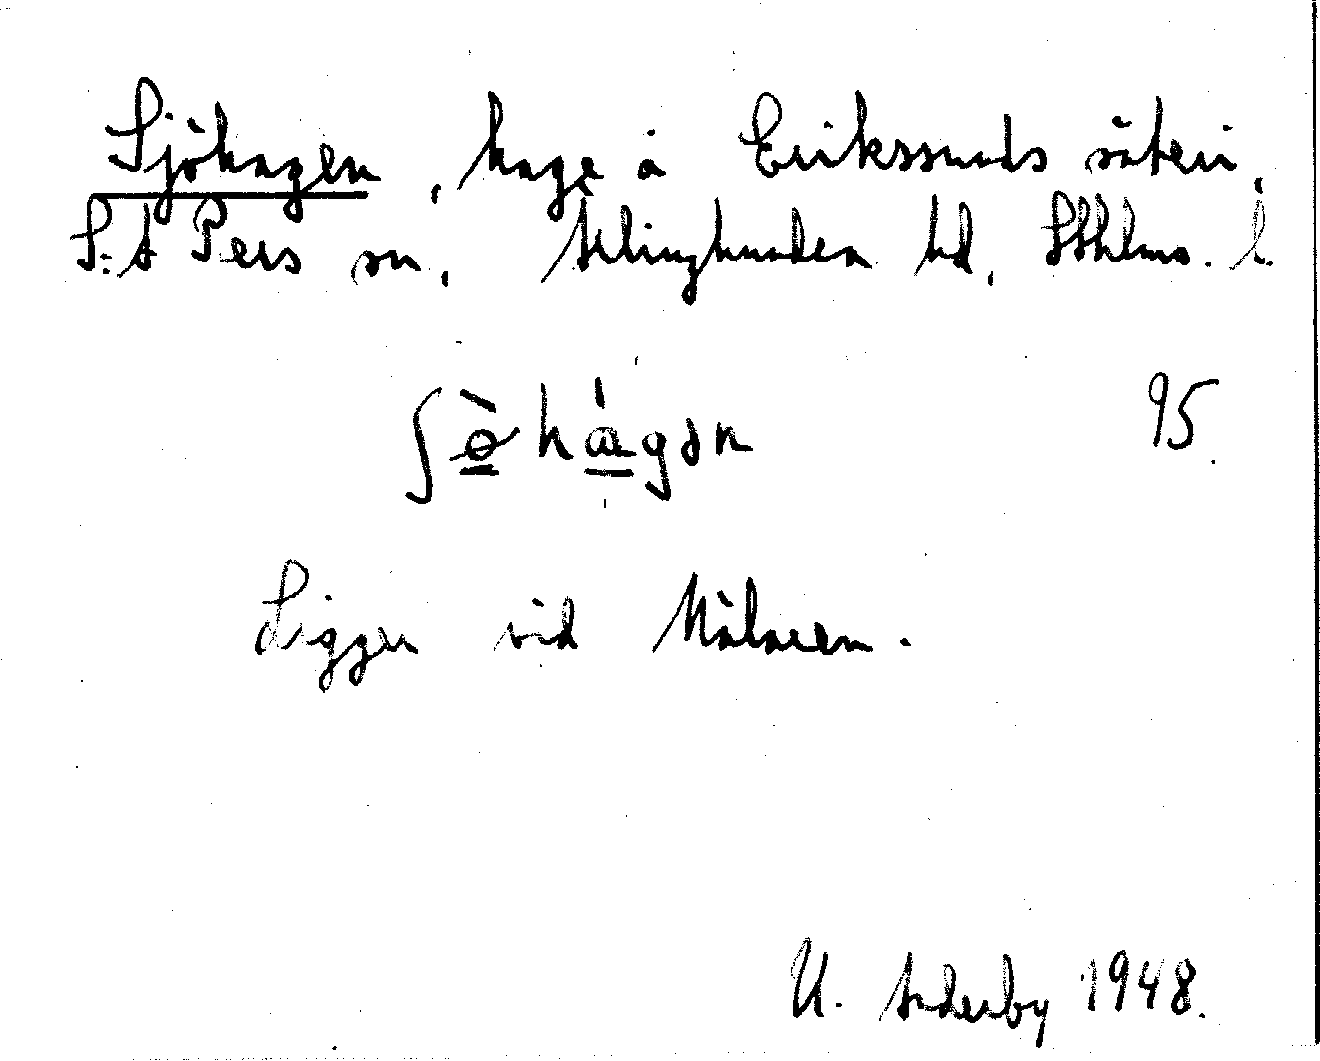 Sjöhagen, hage å Erikssunds säteri,
S:t Pers sn, Ärlinghundra hd, Sthlms. l.
ʃö̀hágən 95
Ligger vid Mälaren.
U. Anderby 1948.